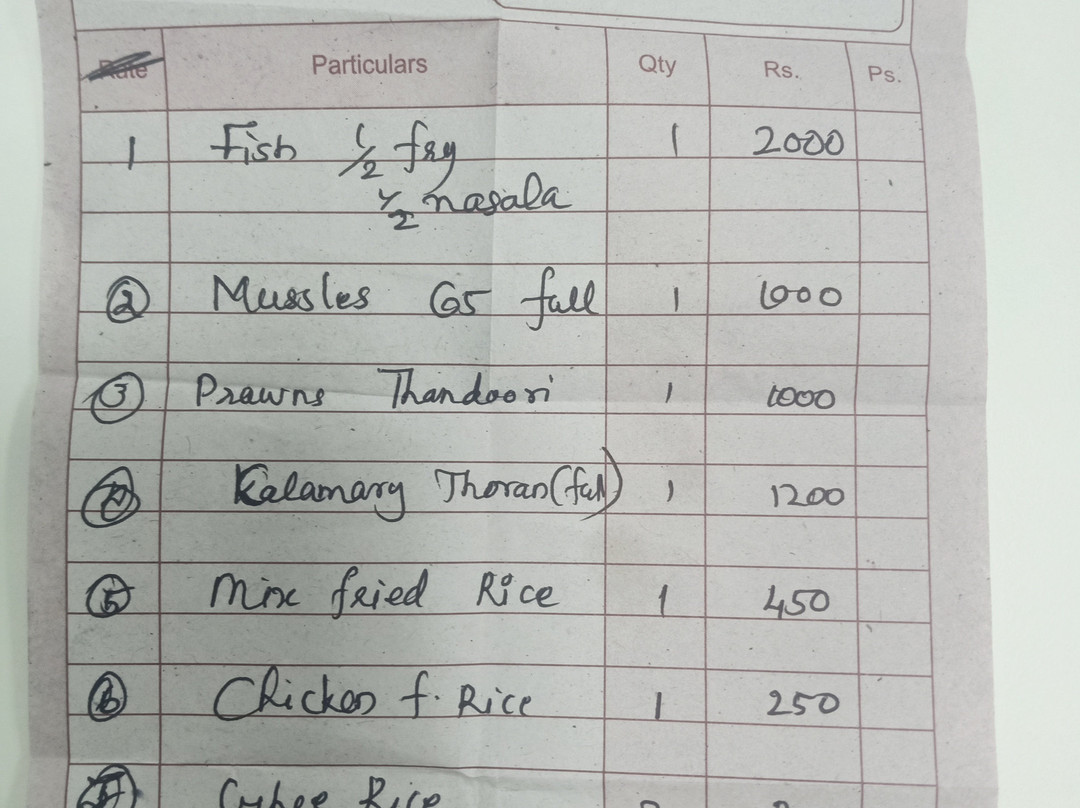 Rate Particulars Qty Rs. Ps.
1 Fish 1/2 fry 1 2000
1/2 masala
2 Mussles 65 full 1 1000
3 Prawns Thandoori 1 1000
4 Kalamary Thoran (full) 1 1200
5 Mix fried Rice 1 450
6 Chicken f. Rice 1 250
Rice